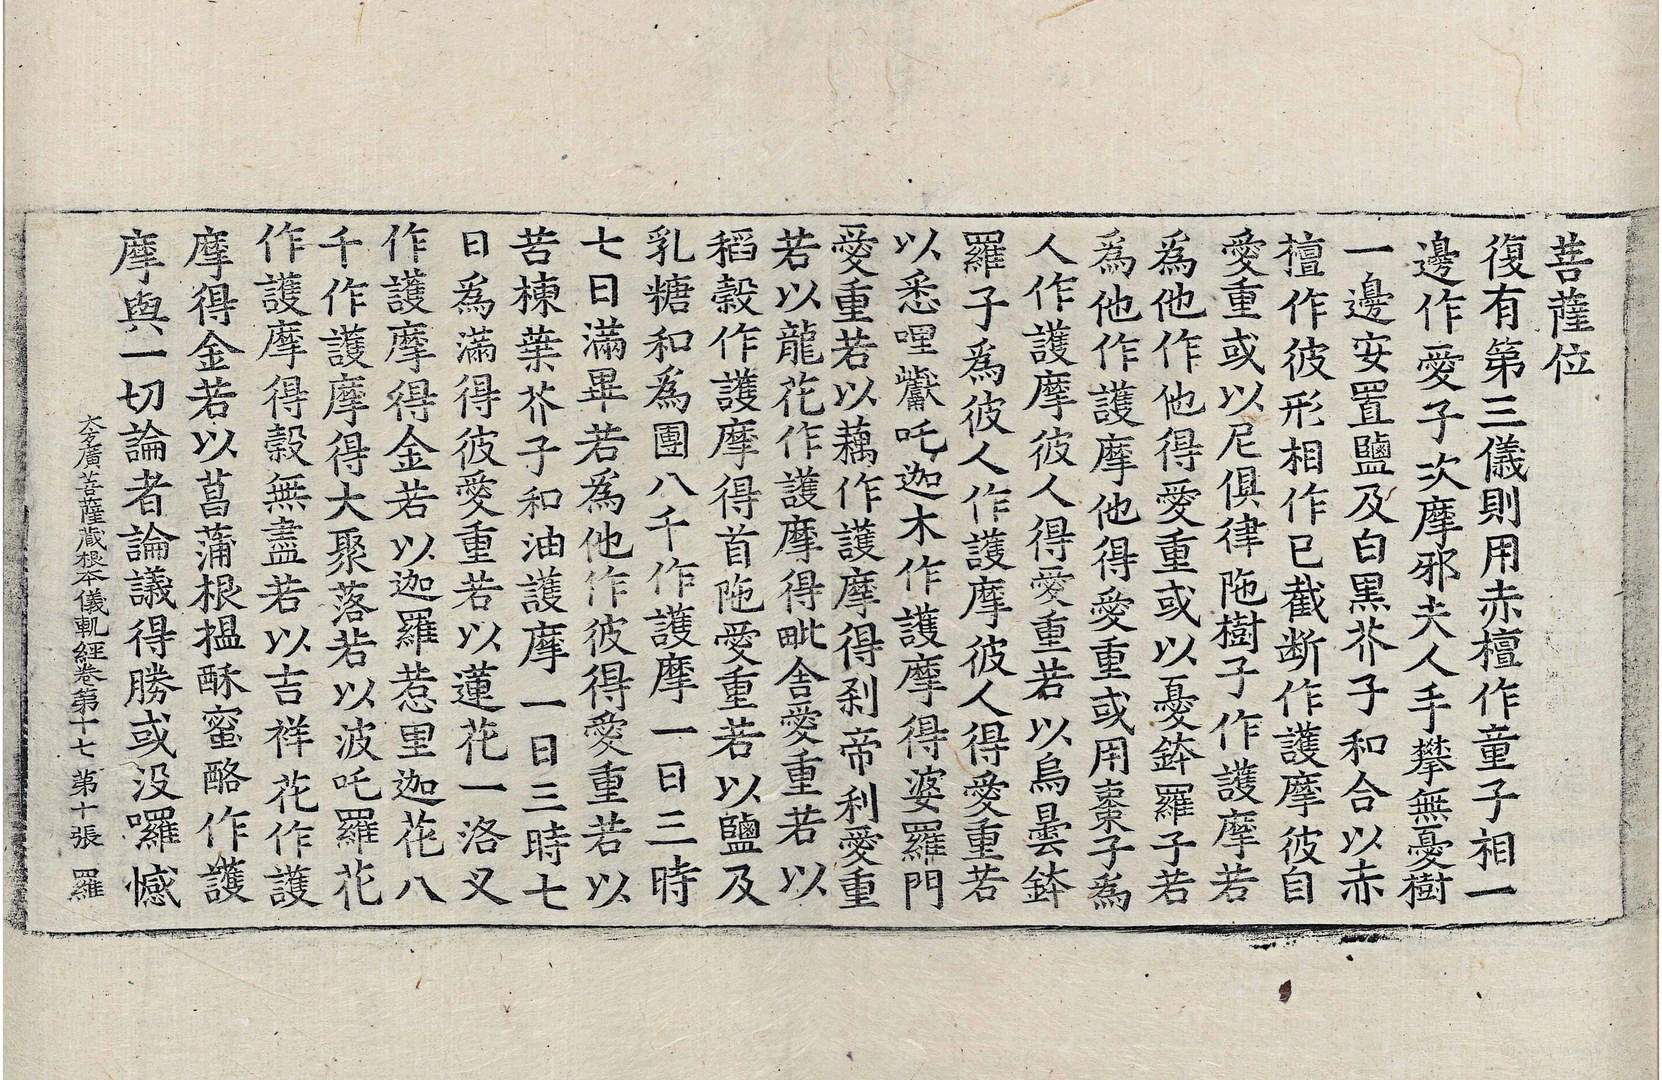 菩薩位
復有第三儀則用赤檀作童子相一
邊作愛子次摩邪夫人手攀無憂樹
一邊安置鹽及白黑芥子和合以赤
檀作彼形相作已截断作護摩彼自
愛重或以尼俱律陁樹子作護摩若
為他作他得愛重或以憂鉢羅子若
為他作護摩他得愛重或用棗子為
人作護摩彼人得愛重若以烏曇鉢
羅子為彼人作護摩彼人得愛重若
以悉哩吒迦木作護摩得婆羅門
愛重若以藕作護摩得刹帝利愛重
若以龍花作護摩得毗舍愛重若以
稻穀作護摩得首陁愛重若以鹽及
乳糖和為團八千作護摩一日三時
七日滿畢若為他作彼得愛重若以
苦楝葉芥子和油護摩一日三時七
日為滿得彼愛重若以蓮花一洛叉
作護摩得金若以迦羅惹里迦花八
千作護摩得大聚落若以波吒羅花
作護摩得穀無盡若以吉祥花作護
摩得金若以菖蒲根揾酥蜜酪作護
摩與一切論者論議得勝或没囉憾
大方廣菩薩蔵根本儀軌經卷第十七 第十張 羅